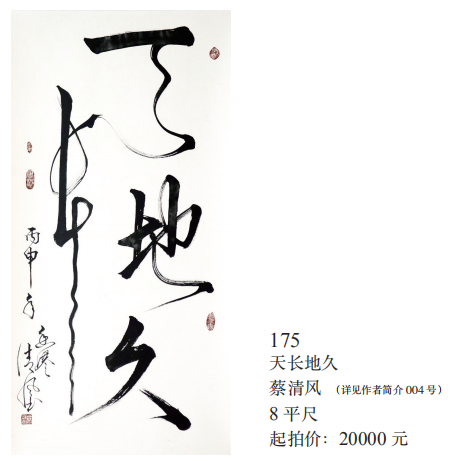 天长地久
丙申年
清风
175
天长地久
蔡清风 （详见作者简介 004 号）
8 平尺
起拍价：20000 元